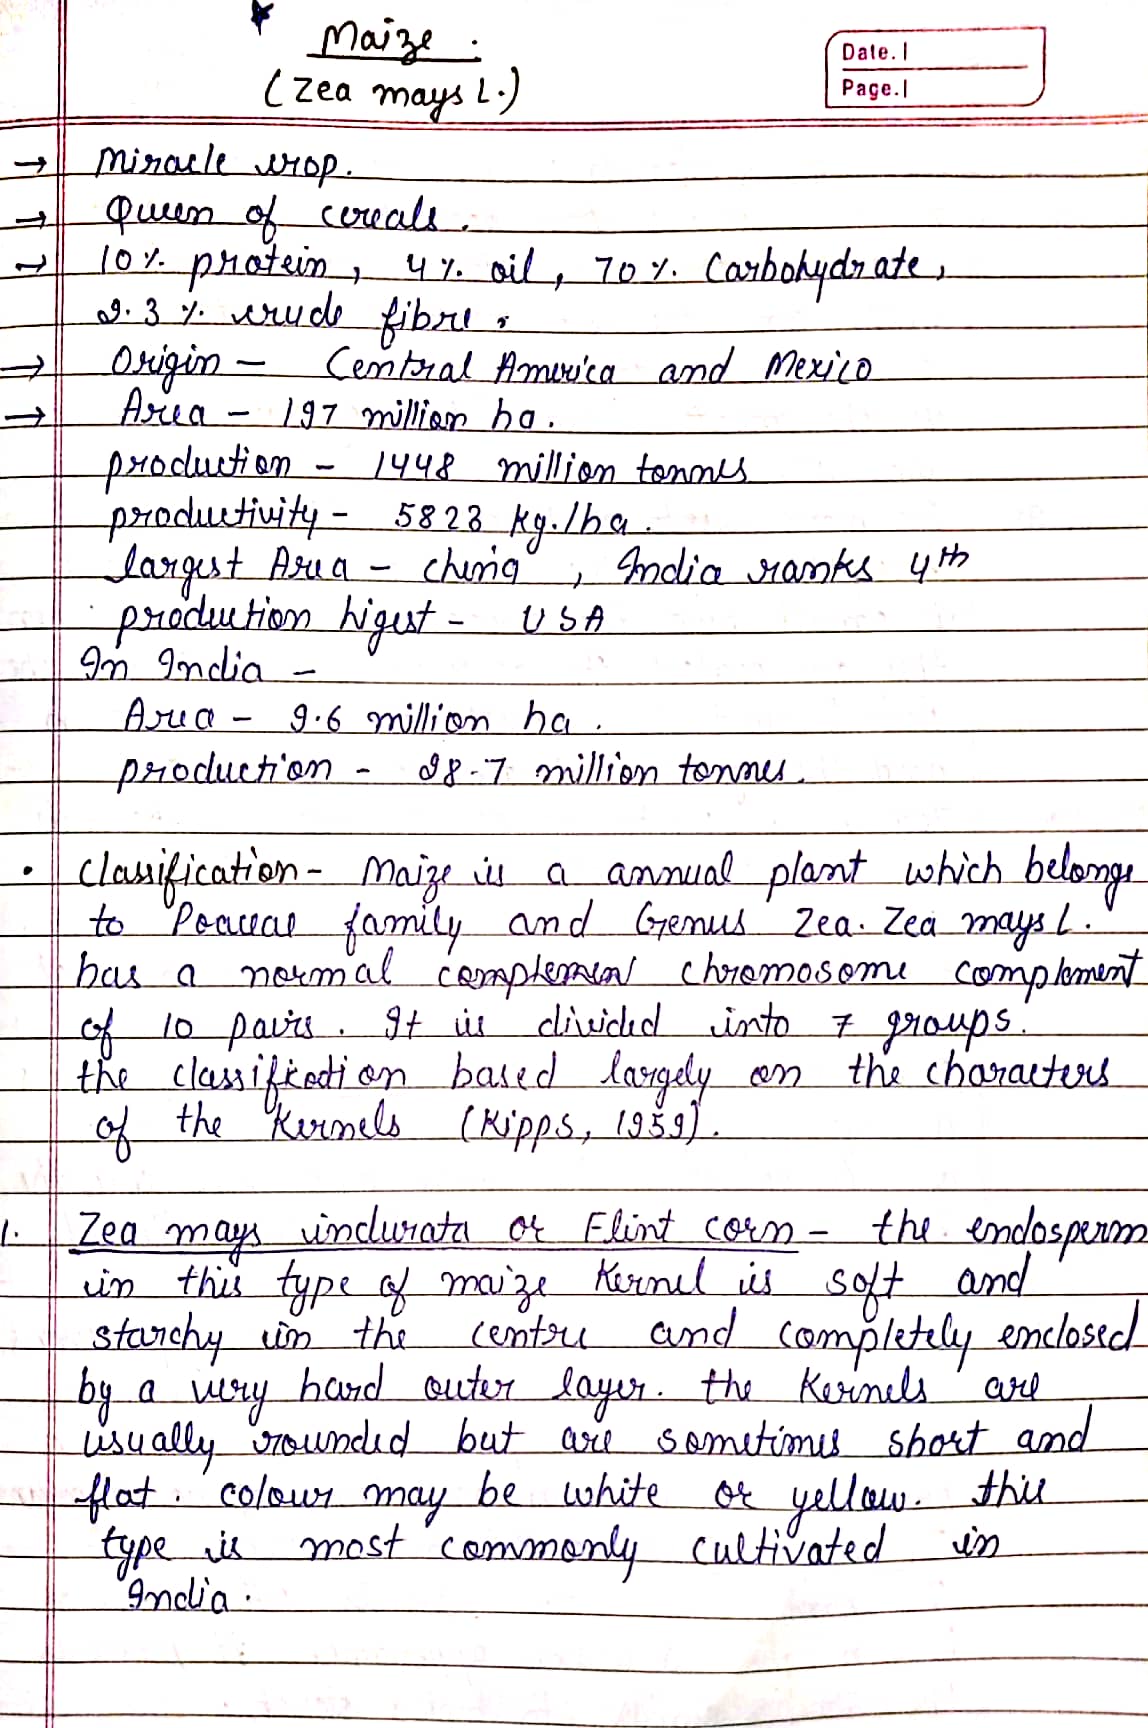 Maize.
(Zea mays L.)
Date.
Page.
→ Miracle crop.
→ Queen of cereals.
→ 10% protein, 4% oil, 70% Carbohydrate,
2.3% crude fibre.
→ Origin – Central America and Mexico
→ Area – 197 million ha.
production – 1448 million tonnes
productivity – 5823 kg./ha.
largest Area – china, India ranks 4th
production higest – USA
In India –
Area – 9.6 million ha.
production – 28.7 million tonnes.
• Classification – Maize is a annual plant which belongs
to Poaceae family and Genus Zea. Zea mays L.
has a normal chromosome complement
of 10 pairs. It is divided into 7 groups.
the classification based largely on the characters
of the Kernels (Kipps, 1959).
1. Zea mays indurata or Flint corn – the endosperm
in this type of maize Kernel is soft and
starchy in the centre and completely enclosed
by a very hard outer layer. the Kernels are
usually rounded but are sometimes short and
flat. colour may be white or yellow. this
type is most commonly cultivated in
India.